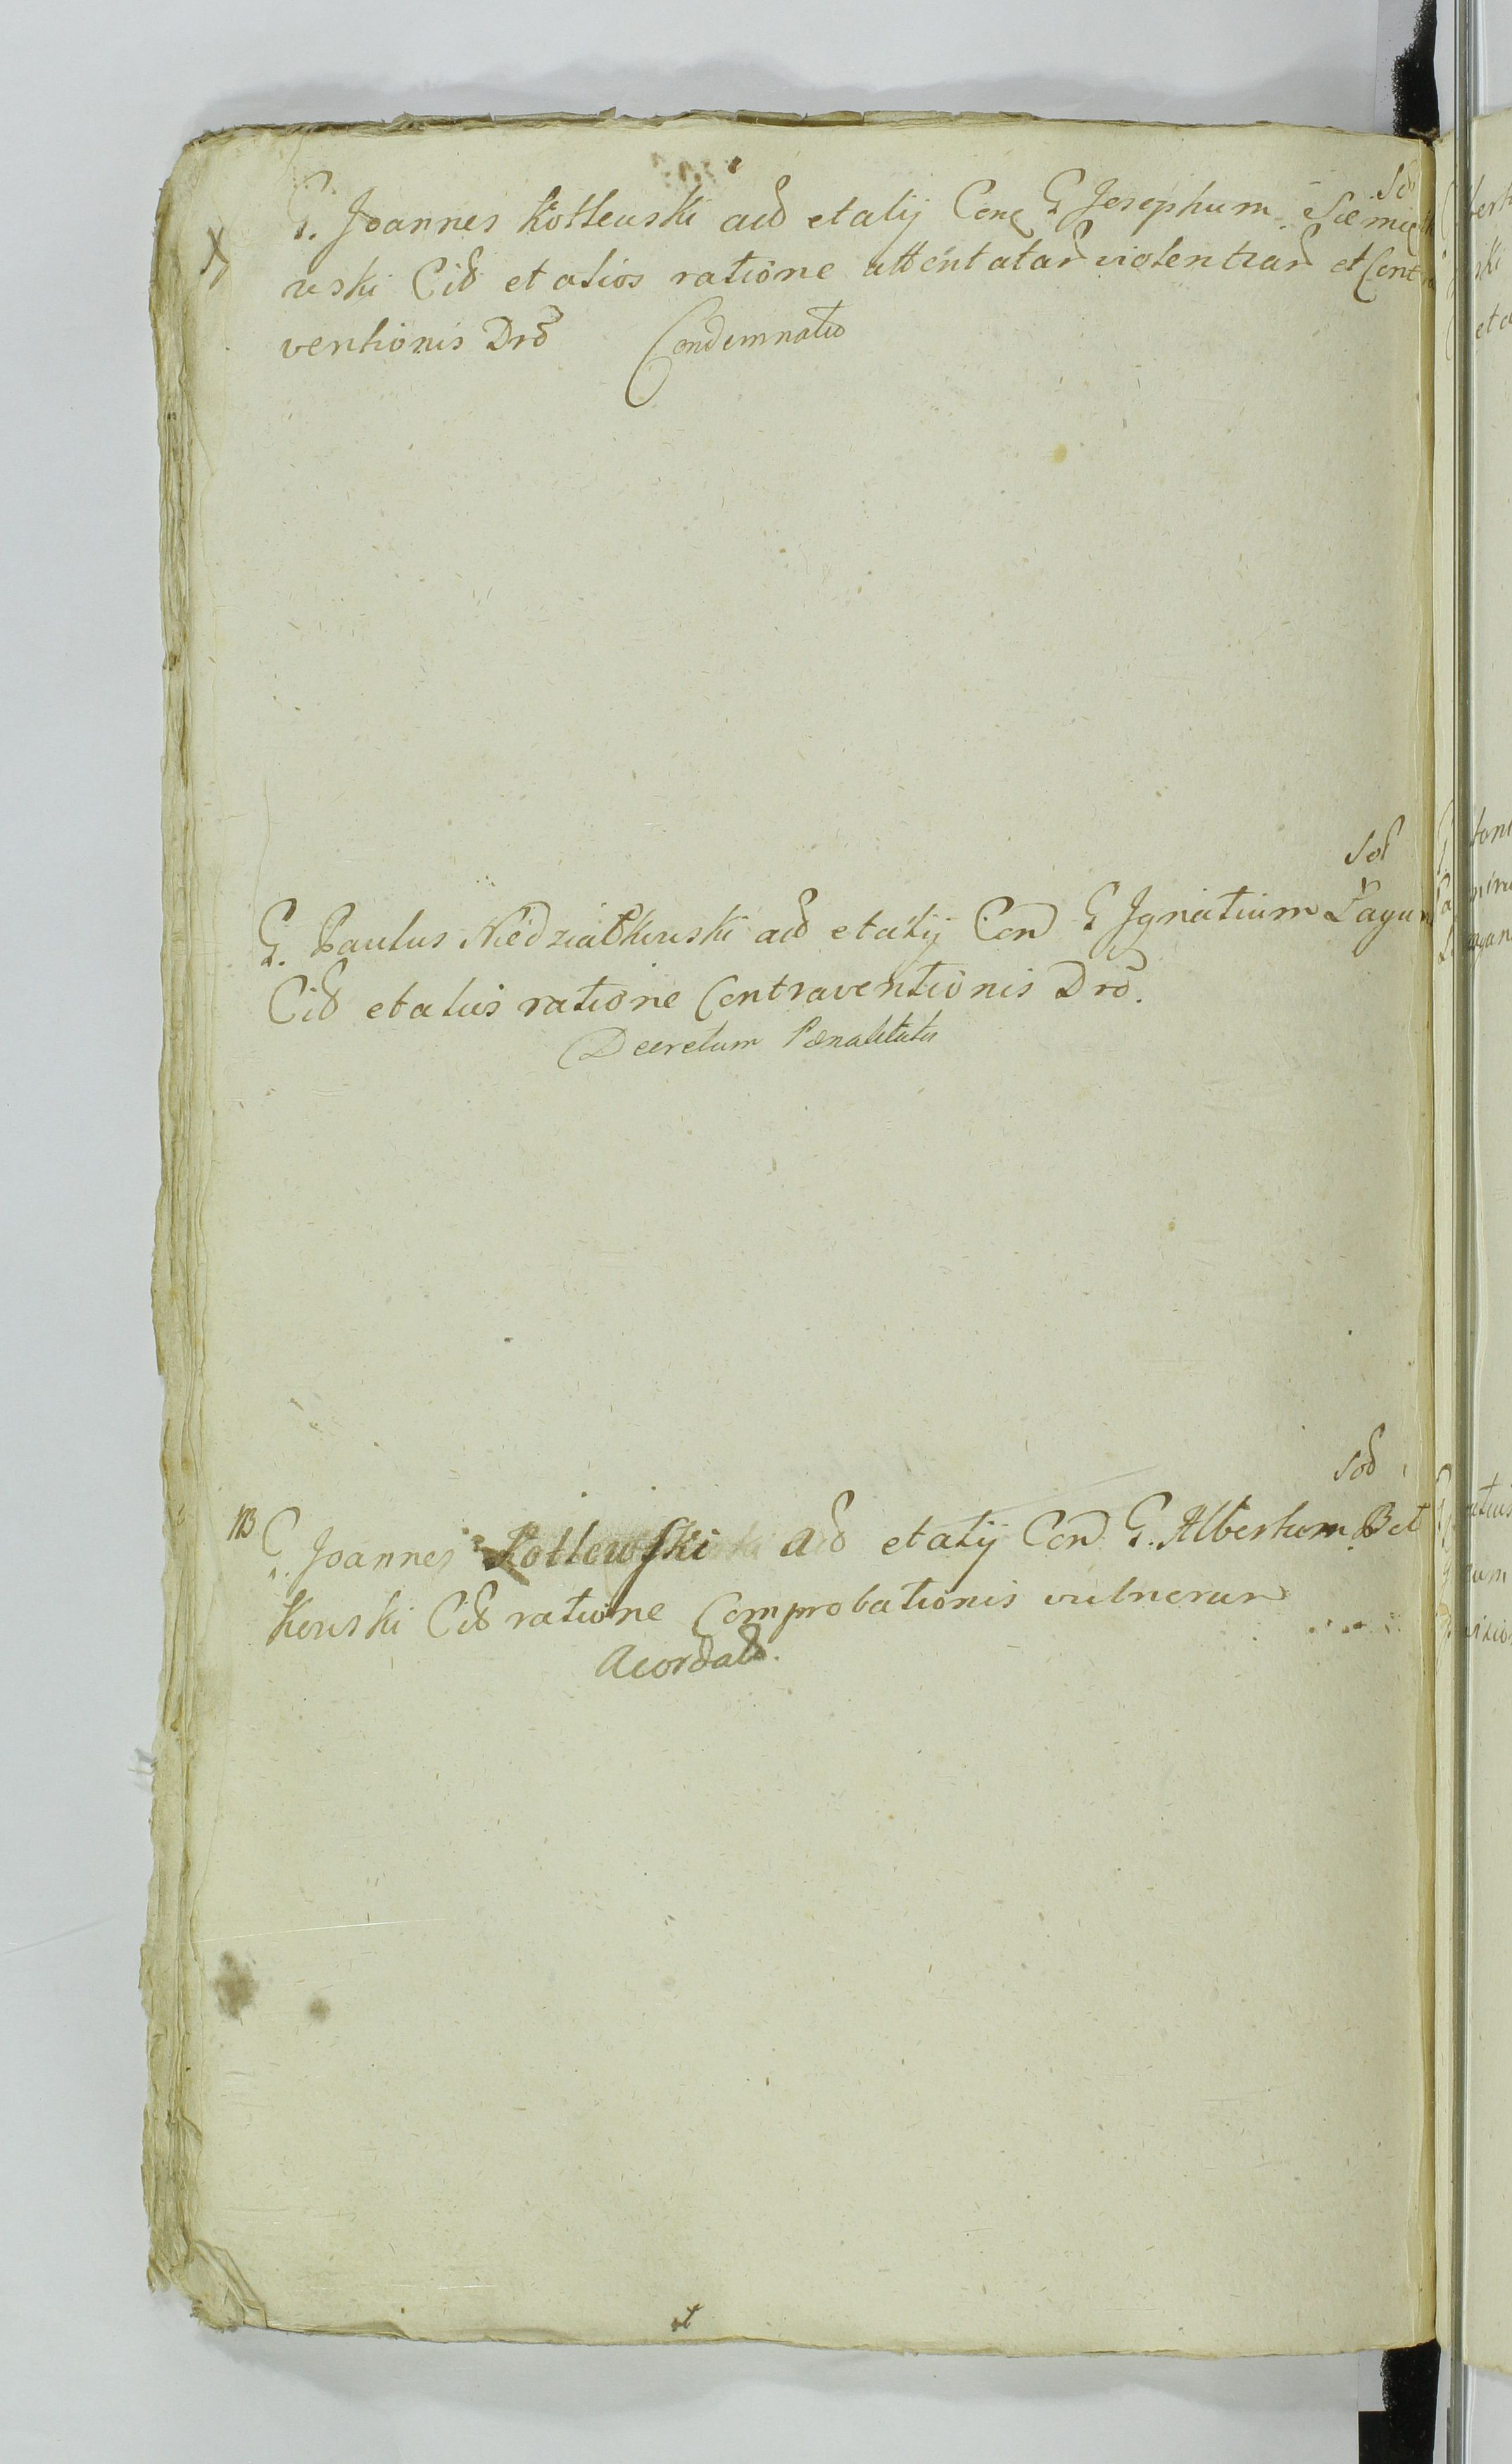 Sol
X G. Joannes Kotlewski acð et alij Conq G Josephum Siemię
wski Citð et alios ratione attentatarð violentiarð et Cont
ventionis Drō Condemnatio
Sol
G. Paulus Niedziałkowski acð et alij Con G Ignatium Łagu
Citð et alios ratione Contraventionis Drō.
Decretum Pœnalitatis
Sol
NB G. Joannes Kotlewski Acð et alij Con G. Albertum Bet
kowski Citð ratione Comprobationis vulnerum
Acordatð.